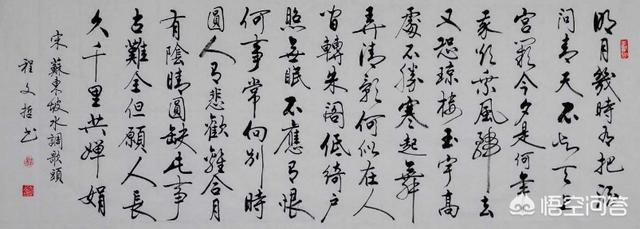 明月幾時有把酒
問青天不知天上
宮闕今夕是何年
我欲乘風歸去
又恐瓊樓玉宇高
處不勝寒起舞
弄清影何似在人
間轉朱閣低綺戶
照無眠不應有恨
何事常向別時
圓人有悲歡離合月
有陰晴圓缺此事
古難全但願人長
久千里共嬋娟
宋蘇東坡水調歌頭
程文哲书
悟空问答